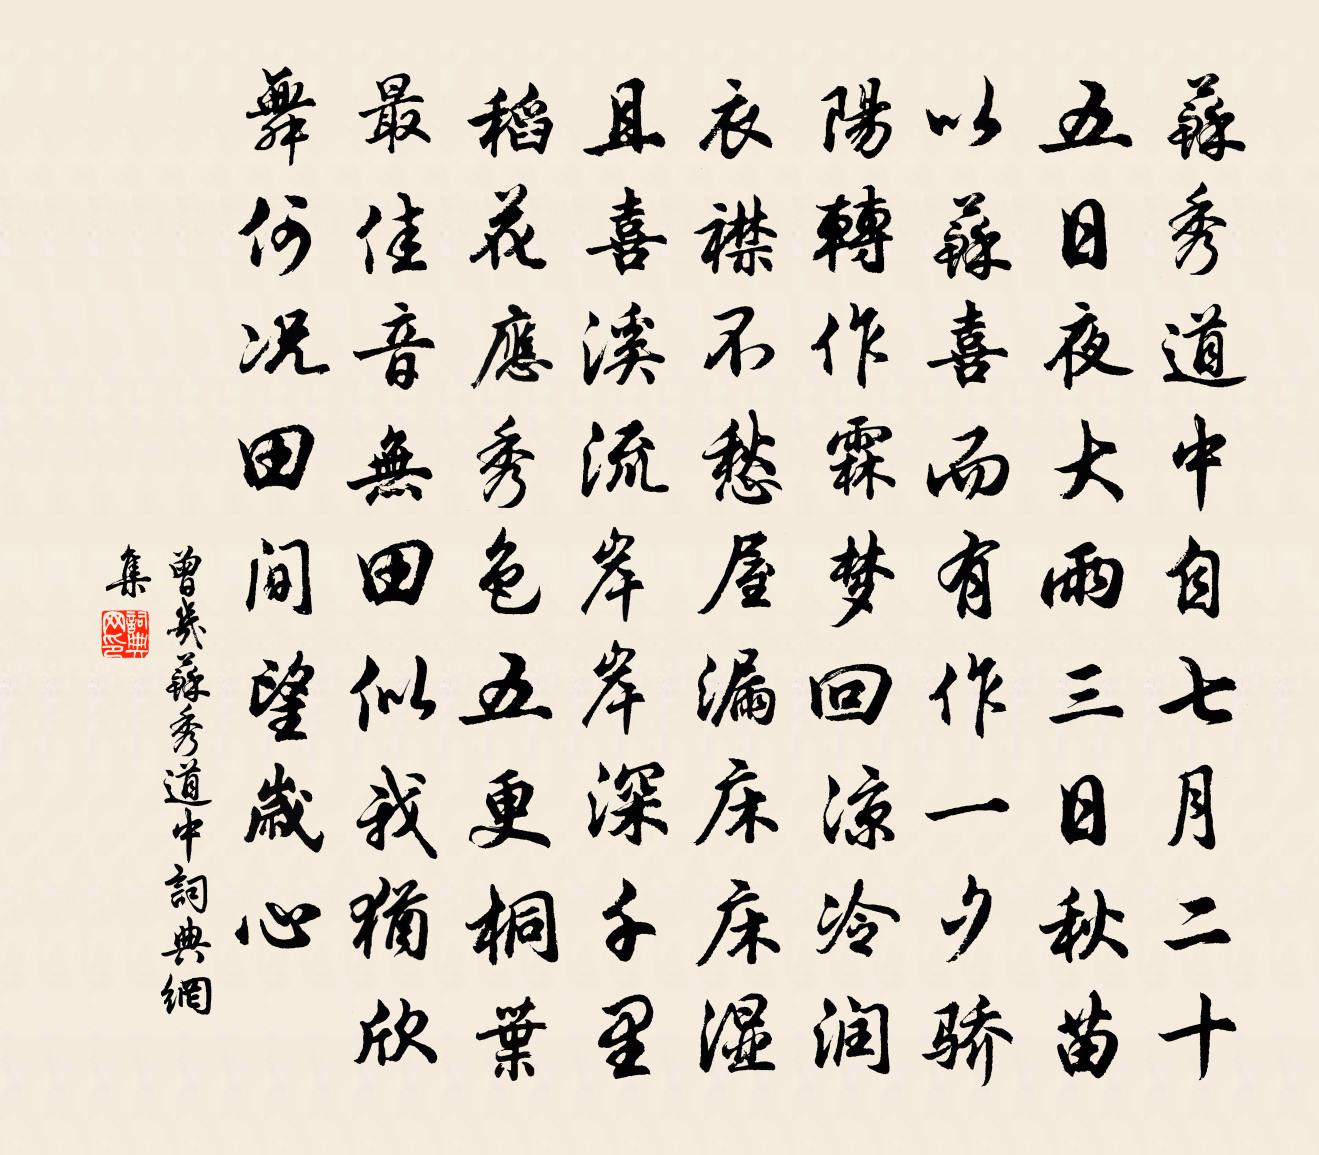 蘇秀道中自七月二十
五日夜大雨三日秋苗
以蘇喜而有作一夕骄
陽轉作霖梦回凉冷润
衣襟不愁屋漏床床湿
且喜溪流岸岸深千里
稻花應秀色五更桐葉
最佳音無田似我猶欣
舞何况田間望歲心
曾幾蘇秀道中詞典網
集
詞典网印